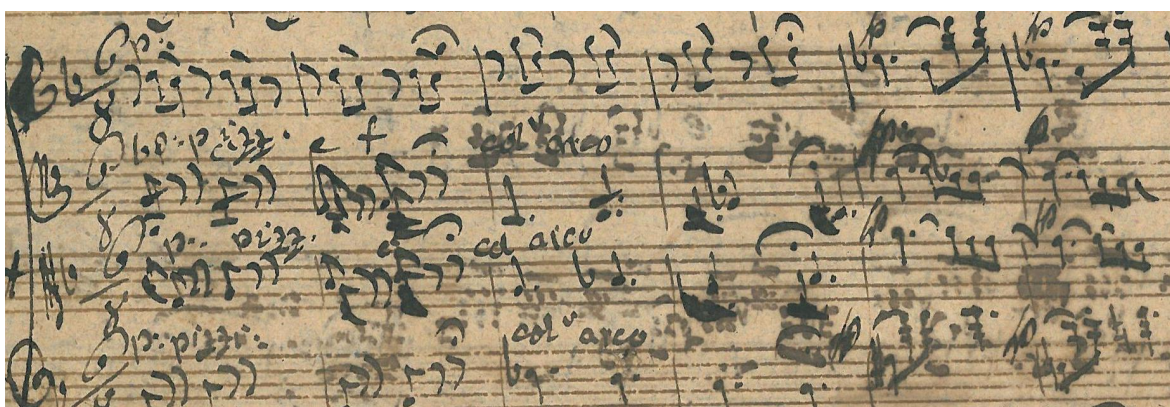 p:
p: pizz: col arco
p: pizz: col arco
p: pizz: col arco